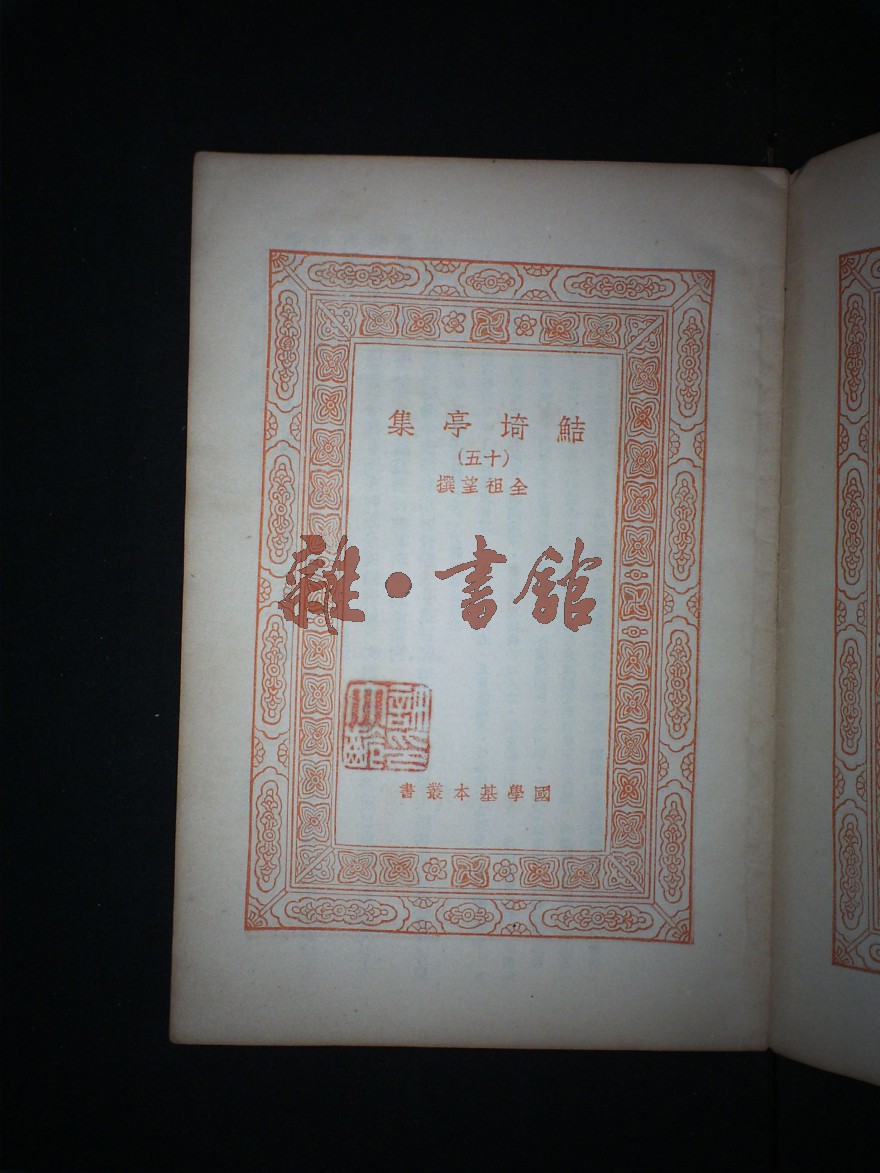 鮚埼亭集
(十五)
全祖望撰
雜·書館
國學基本叢書